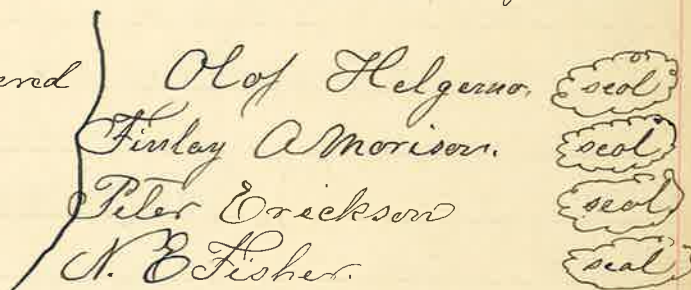 ered Olof Helgerno. seal
Finlay A Morison. seal
Peter Erickson seal
N. E Fisher. seal